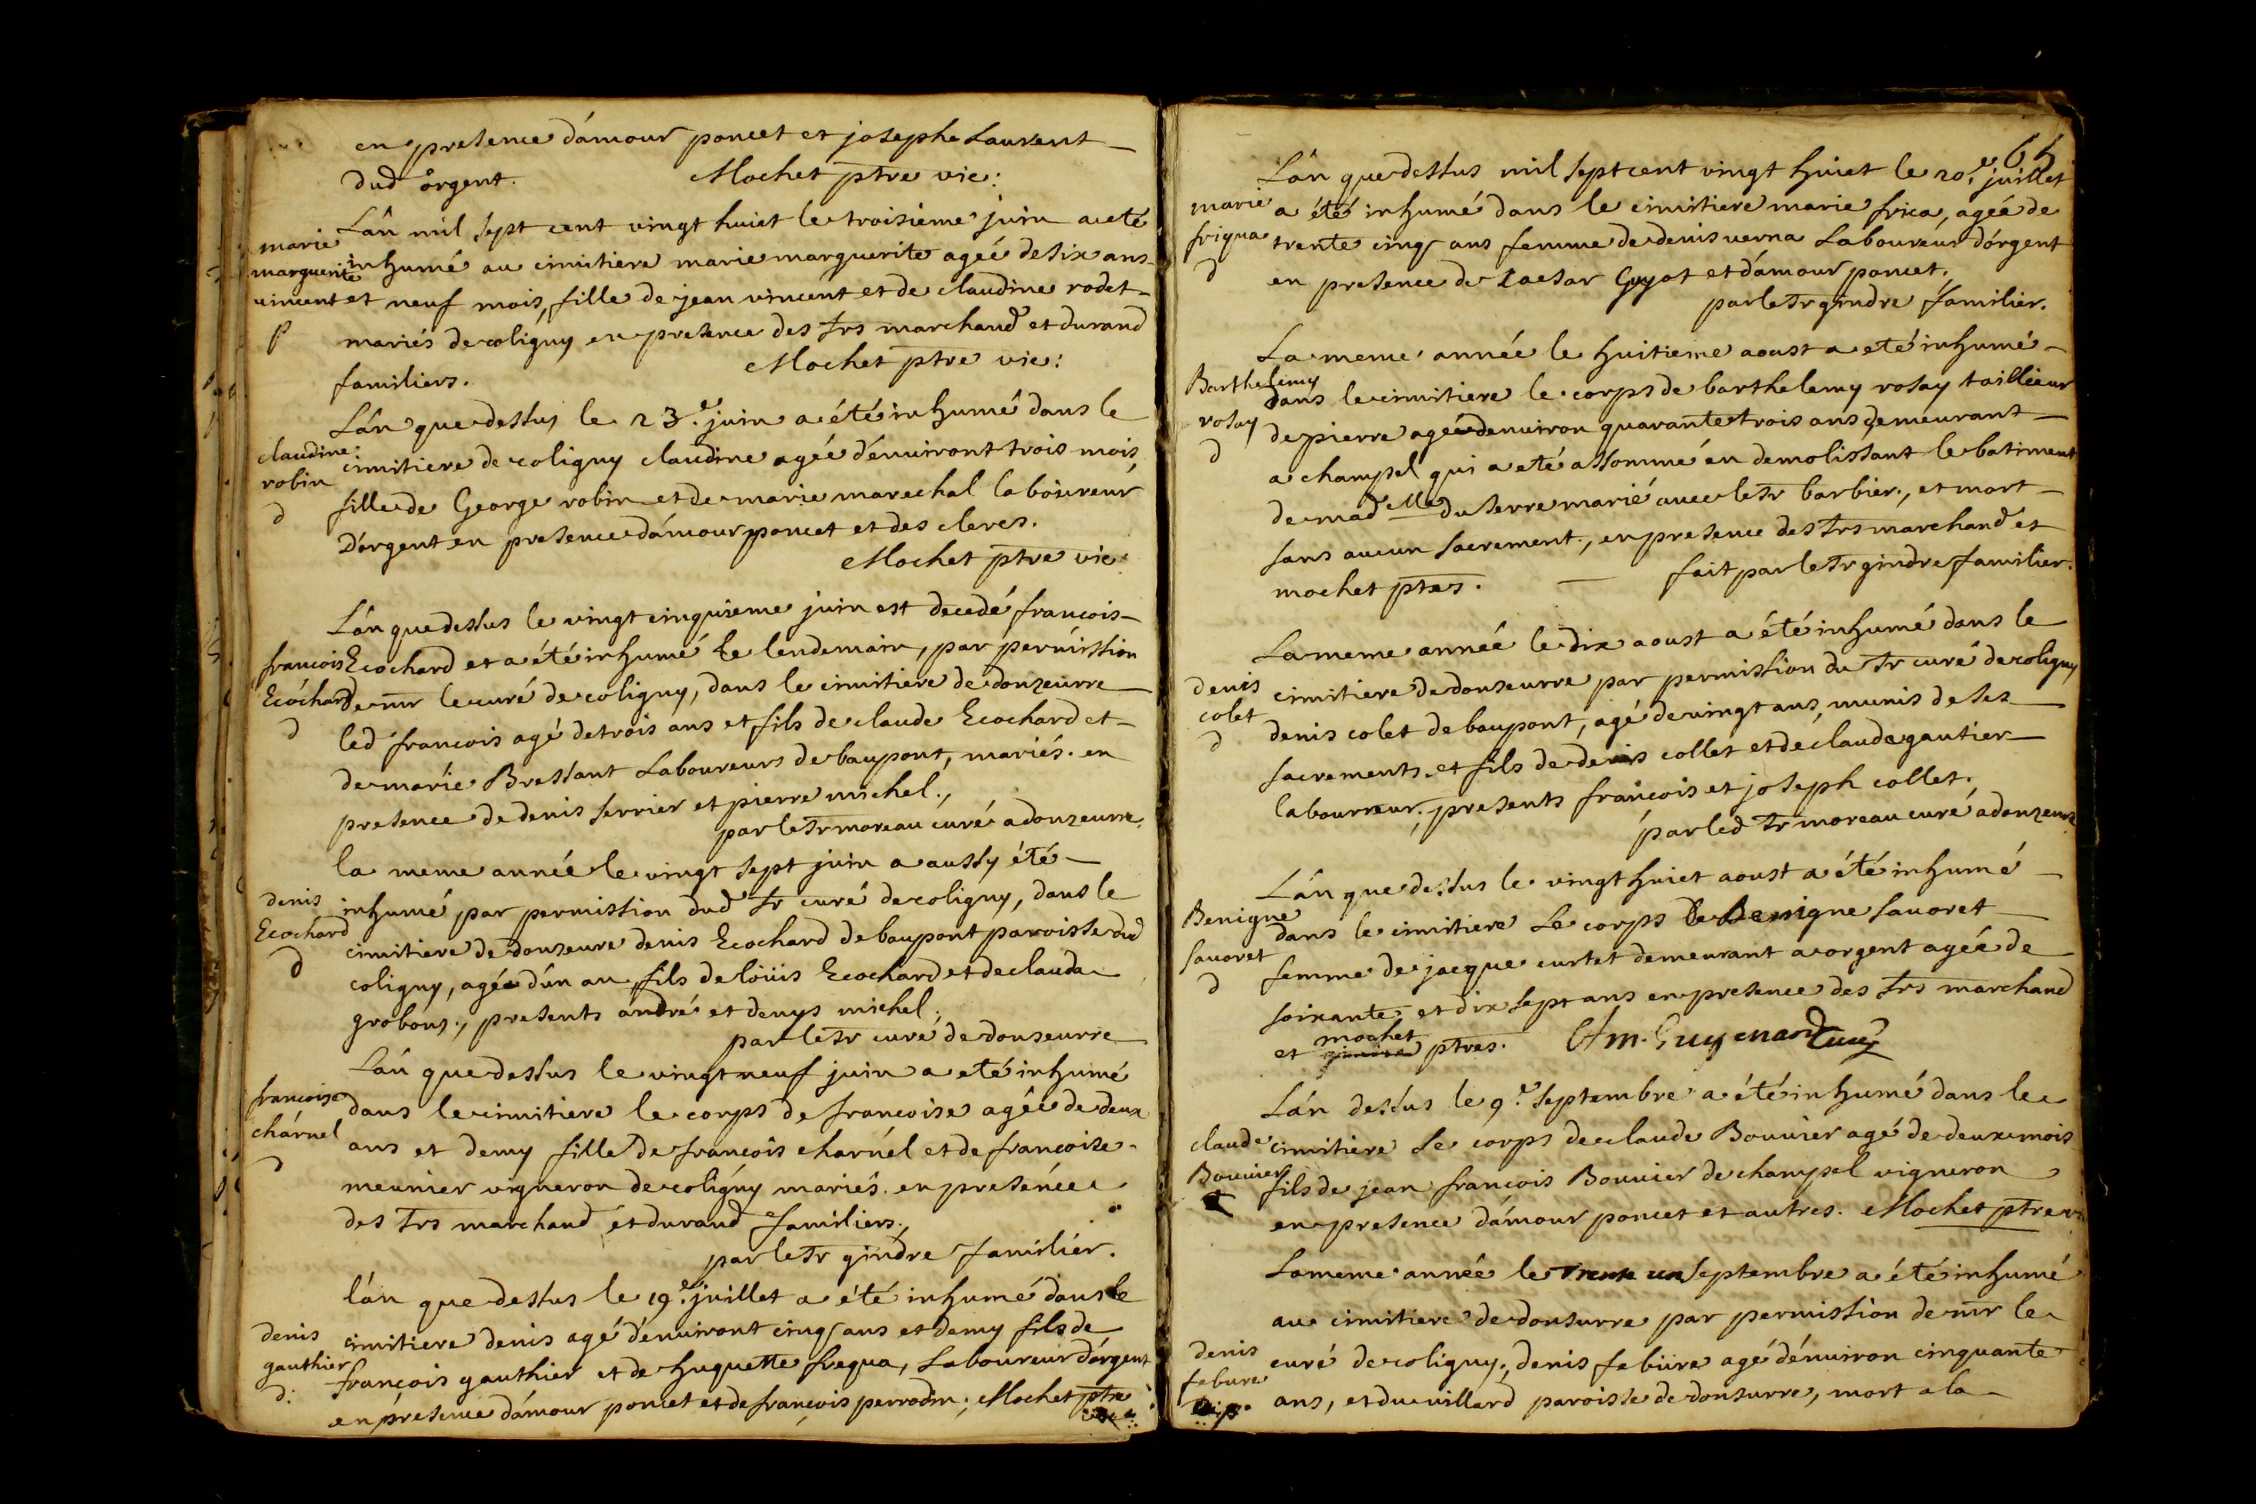 en presence d'amour poncet et josephe Laurent
dud orgent. Mochet ptre vic:
Lân mil sept cent vingt huict le troisieme juin a eté
marie
marguerite
vincent
p
inhumé au cimitiere marie marguerite agée de six ans
et neuf mois, fille de jean vincent et de claudine rodet
mariés de coligny en presence des srs marchand et durand
familiers. Mochet ptre vic:
Lân que dessus le 23.e juin a été inhumé dans le
claudine
robin
d
cimitiere de coligny claudine agée d'enuiront trois mois,
fille de George robin et de marie marechal laboureur
D'orgent en presence d'amour poncet et des clercs.
Mochet ptre vic
Lân que dessus le vingt cinquieme juin est decedé francois
francois
Ecochard
d
Ecochard et a été inhumé le lendemain, par permission
de mr le curé de coligny, dans le cimitiere de donzeurre
led francois agé de trois ans et fils de claude Ecochard et
de marie Bressant Laboureurs de baupont, mariés. en
presence de denis serrier et pierre michel.,
par le sr moreau curé a donzeurre.
la meme année le vingt sept juin a aussy été
denis
Ecochard
d
inhumé par permission dud sr curé de coligny, dans le
cimitiere de donzeure denis Ecochard de baupont paroisse dud
coligny, agée d'un an, fils de loüis Ecochard et de clauda
grobons., presents andré et denys michel.,
par le sr curé de donseurre
Lân que dessus le vingt neuf juin a eté inhumé
francoise
charnel
d
dans le cimitiere le corps de francoise agée de deux
ans et demy fille de francois charnel et de francoise
meunier vigneron de coligny mariés. en presence
des srs marchand et durand familiers.,
par le sr gindre familier.
lân que dessus le 19.e juillet a été inhumé dans le
denis
gauthier
d:
cimitiere denis agé d'enuiront cinq ans et demy fils de
francois gauthier et de huguette frequa, Laboureur d'orgent
en presence d'amour poncet et de francois perrodin; Mochet ptre
65
Lân que dessus mil sept cent vingt huict le 20.e juillet
marie
friqua
d
a été inhumé dans le cimitiere marie frica, agée de
trente cinq ans femme de denis verna Laboureur d'orgent
en presence de Caesar Guyot et d'amour poncet.
par le sr gindre familier.
La meme année le huitieme aoust a eté inhumé
Barthelemy
rosay
d
dans le cimitiere le corps de barthelemy rosay tailleur
de pierre agé d'enuiron quarante trois ans demeurant
a champel qui a eté assommé en demolissant le batiment
de madelle du serre marié auec le sr barbier., et mort
sans aucun sacrement., en presence des srs marchand et
mochet ptres. fait par le sr gindre familier.
La meme année le dix aoust a été inhumé dans le
denis
colet
d
cimitiere de donseurre par permission du sr curé de coligny
denis colet de baupont, agé de vingt ans, munis de ses
sacrements. et fils de denis collet et de claude gautier
labourreur., presents francois et joseph collet.
par led sr moreau curé a donzeure
Lân que dessus le vingt huict aoust a été inhumé
Benigne
sauoret
d
dans le cimitiere Le corps de Benigne sauoret
femme de jacque curtet demeurant a orgent agée de
soixante et dix sept ans en presence des srs marchand
et mochet ptres. Am. Guyenard curé
Lân dessus le 9.e septembre a été inhumé dans le
claude
Bouuier
cimitiere Le corps de claude Bouuier agé de deux mois
fils de jean francois Bouuier de champel vigneron
en presence d'amour poncet et autres. Mochet ptre
La meme année le trente un septembre a été inhumé
au cimitiere de donsurre par permission de mr le
denis
febure
curé de coligny., denis febure agé d'enuiron cinquante
ans, et du villard paroisse de donsurre, mort a la